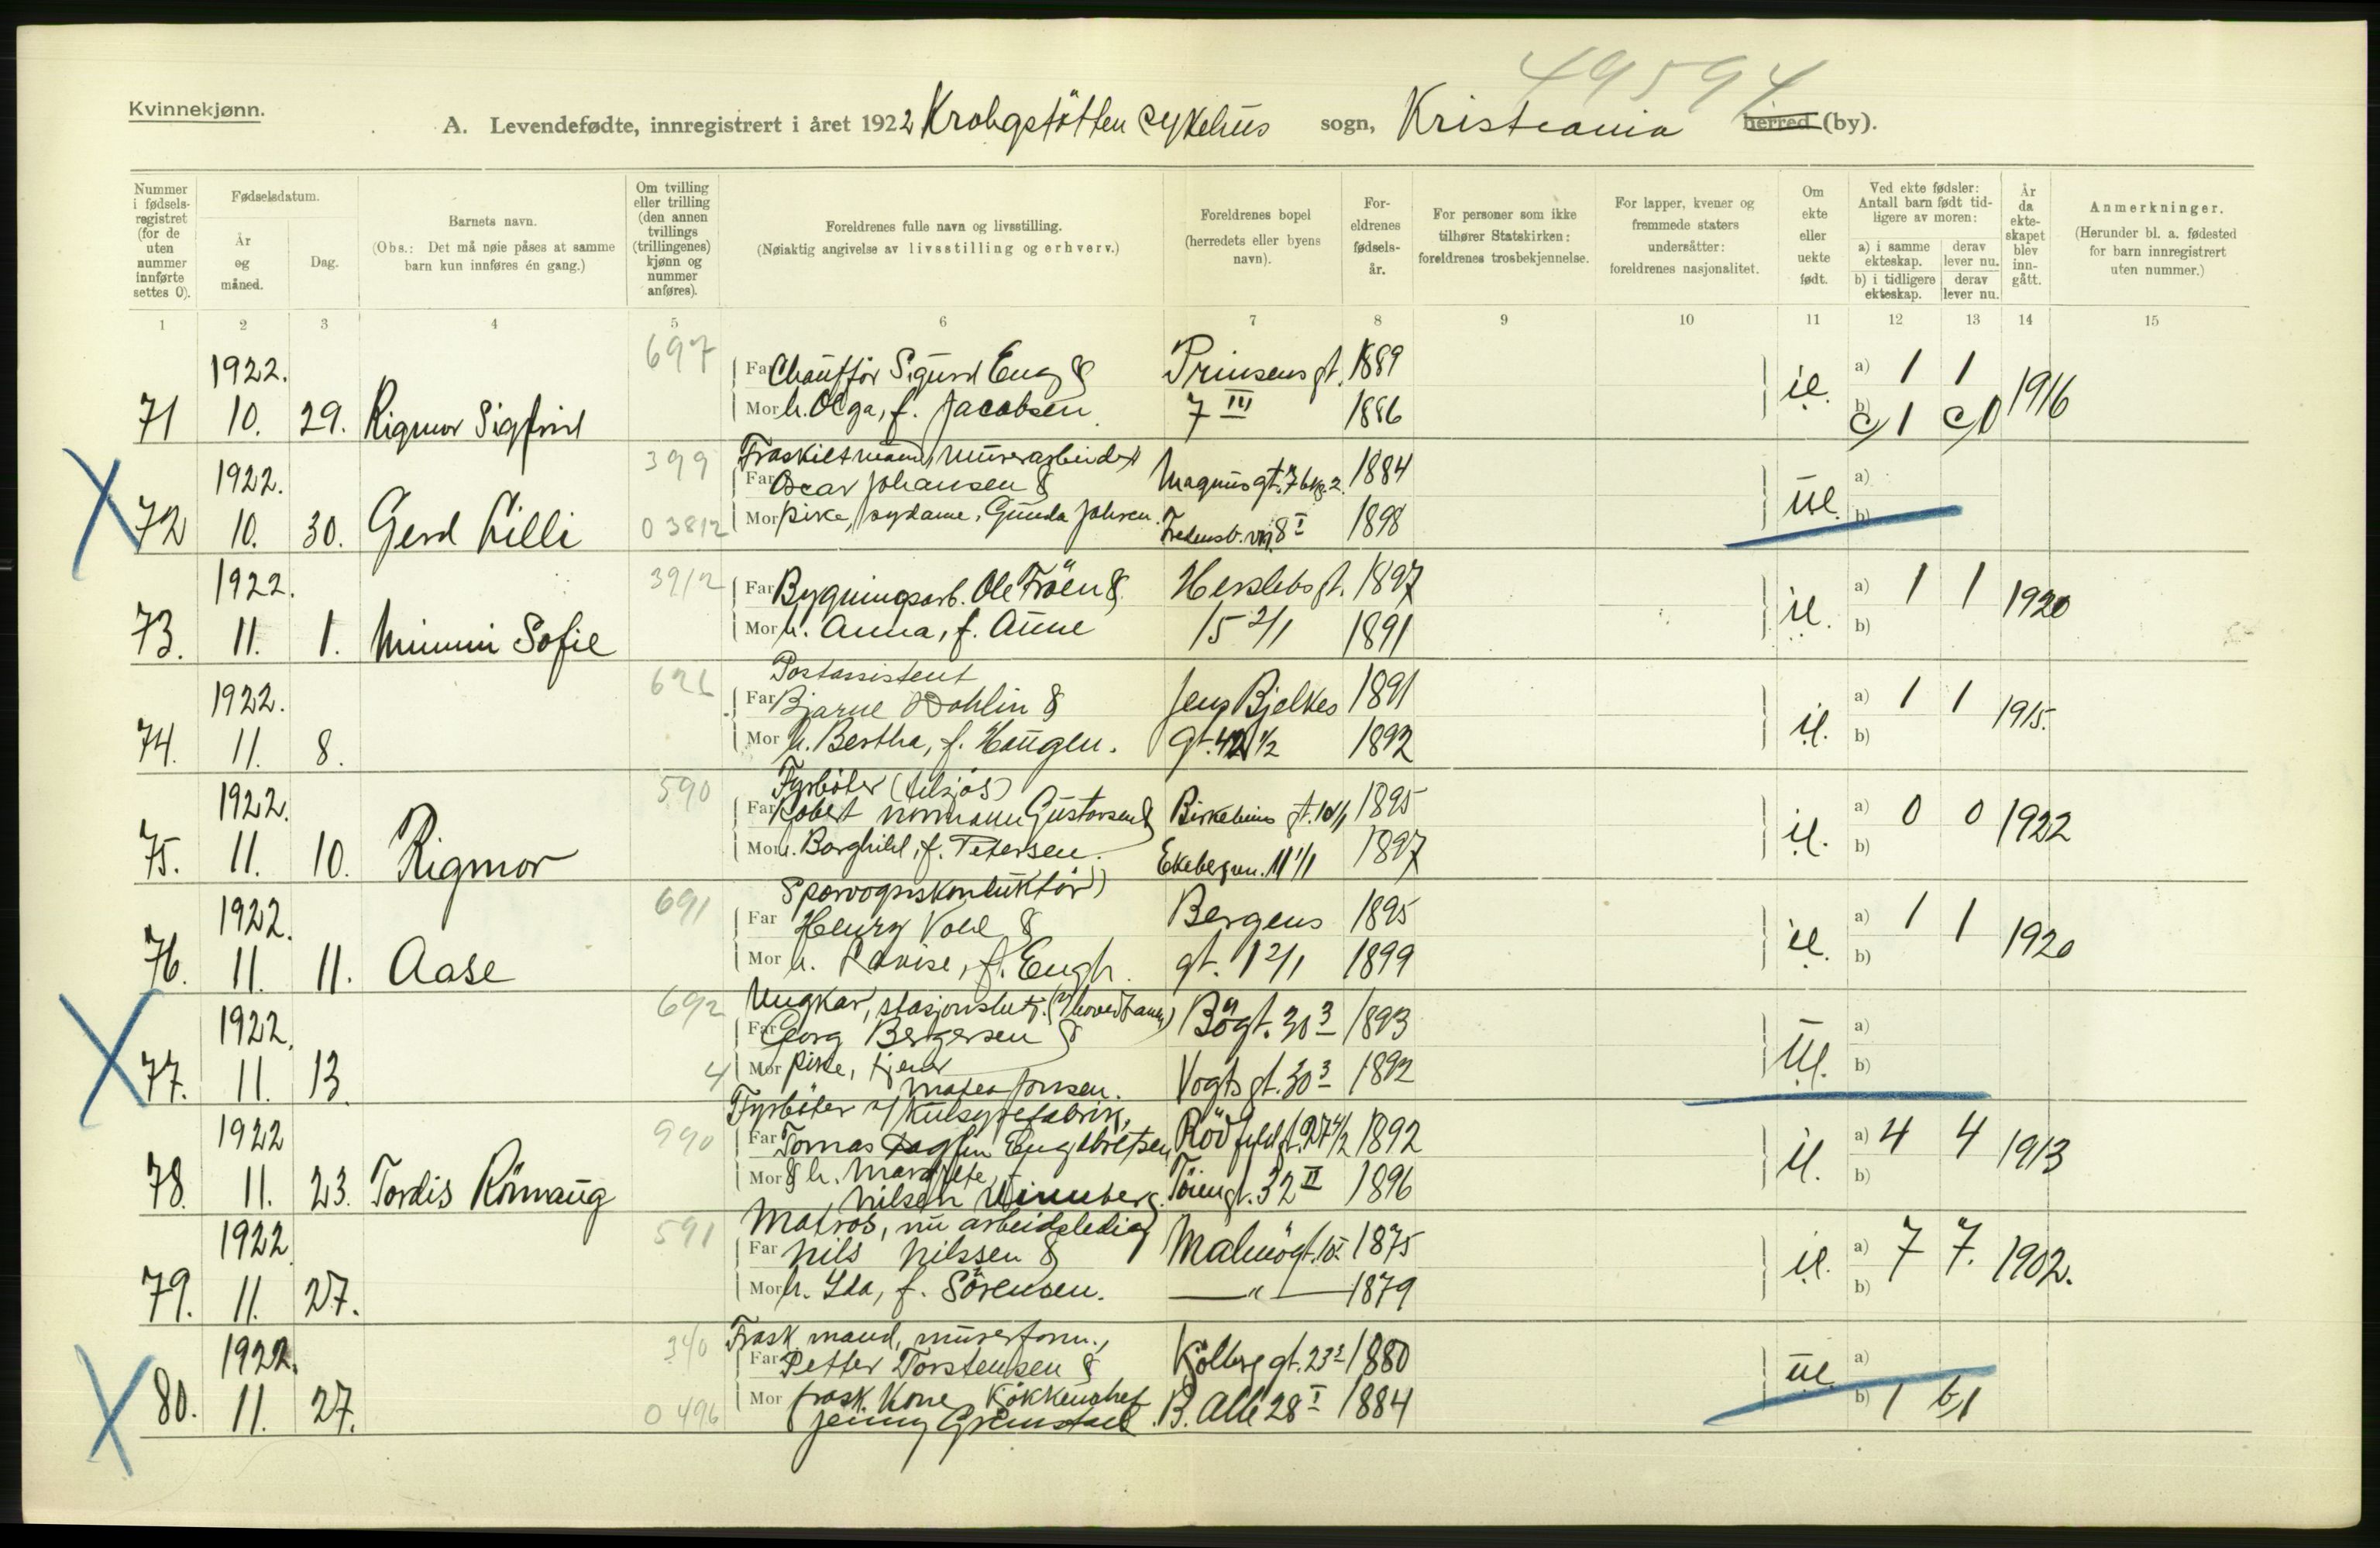 49594
Kvinnekjønn.
A. Levendefødte, innregistrert i året 1922 Krohgstötten sykehus sogn, Kristiania herred (by).
Nummer i fødsels-registret (for de uten nummer innførte settes 0).
Fødselsdatum.
År og måned.
Dag.
Barnets navn.
(Obs.: Det må nøie påses at samme barn kun innføres én gang.)
Om tvilling eller trilling (den annen tvillings (trillingenes) kjønn og nummer anføres).
Foreldrenes fulle navn og livsstilling.
(Nøiaktig angivelse av livsstilling og erhverv.)
Foreldrenes bopel (herredets eller byens navn).
For-eldrenes fødsels-år.
For personer som ikke tilhører Statskirken: foreldrenes trosbekjennelse.
For lapper, kvener og fremmede staters undersåtter: foreldrenes nasjonalitet.
Om ekte eller uekte født.
Ved ekte fødsler: Antall barn født tid-ligere av moren:
a) i samme ekteskap. derav lever nu.
b) i tidligere ekteskap. derav lever nu.
År da ekte-skapet blev inn-gått.
Anmerkninger.
(Herunder bl. a. fødested for barn innregistrert uten nummer.)
1 2 3 4 5 6 7 8 9 10 11 12 13 14 15
697
1922. Far Chaufför Sigurd Eng & Prinsens gt. 1889 a) 1 1
71 10. 29. Rigmor Sigfrid Mor h. Olga, f. Jacobsen 7 III 1886 ie. b) c/1 c/0 1916
399 Fraskilt mand, murerarbeider
1922. Far Oscar Johansen & Magnus gt. 7 bkg. 2. 1884 a)
72 10. 30. Gerd Lilli 03812 Mor pike, sydame, Gunda Johnsen. Fredensb. vei 8 I 1898 ue. b)
1922. 3912 Far Bygningsarb. Ole Fröen & Herslebs gt. 1897 a) 1 1
73. 11. 1. Mimmi Sofie Mor h. Anna, f. Aune 15 2/1 1891 ie. b) 1920
Postassistent
1922. Far Bjarne Dohlin & Jens Bjelkes 1891 a) 1 1
74. 11. 8. Mor h. Bertha, f. Haugen. gt. 42 1/2 1892 ie. b) 1915.
590 Fyrböter (tilsjös)
1922. Far Robert Normann Gustavsen & Birkebeiner gt. 10/1 1895 a) 0 0
75. 11. 10. Rigmor Mor h. Borghild, f. Petersen. Ekebergvn. 11 1/1 1897 ie. b) 1922
691 Sporvognskonduktör
1922. Far Henry Vold & Bergens 1895 a) 1 1
76. 11. 11. Aase Mor h. Lovise, f. Engh. gt. 1 2/1 1899 ie. b) 1920
692 Ungkar, stasjonsbetj.
1922. Far Georg Bergersen & 1893 a)
77. 11. 13. 4 Mor pike, tjener Vogts gt. 30 3 1892 ue. b)
Matea Jonsen.
Fyrböter v/ Kulsyrefabrik,
1922 990 Far Tomas Engebretsen Rödfyld gt. 27 4/2 1892 a) 4 4
78. 11. 23. Tordis Rönnaug Mor & h. Margrete, f. Töiengt. 32 II 1896 ie. b) 1913
Nilsen Winnberg.
591 Matros, nu arbeidsledig
1922 Far Nils Nilssen & Malmögt. 10 I 1875 a) 7 7.
79. 11. 27. Mor h. Ida, f. Sörensen. — " — 1879 ie. b) 1902.
340 Frask. mand, murerform.,
1922. Far Petter Torstensen & Kölberg gt. 23 2 1880 a)
80. 11. 27. Mor frask. kone, Kökkenchef B. Allé 28 I 1884 ue. b) 1 b/1
0496 Jenny Grimstad